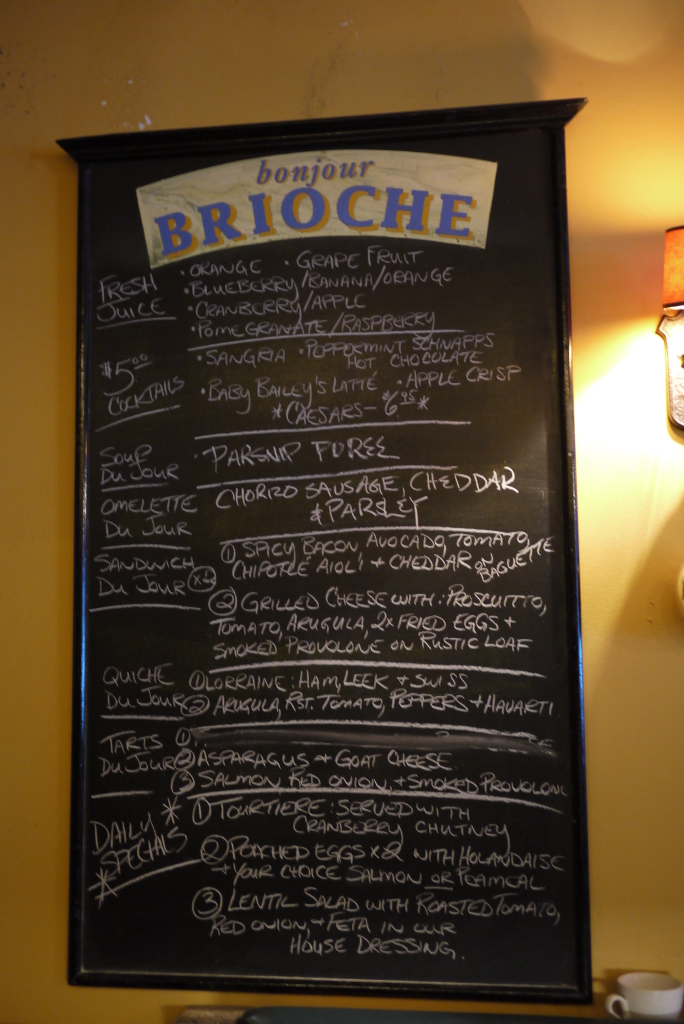 bonjour
BRIOCHE
FRESH JUICE
· ORANGE · GRAPE FRUIT
· BLUEBERRY/BANANA/ORANGE
· CRANBERRY/APPLE
· POMEGRANATE/RASPBERRY
$5.00 COCKTAILS
· SANGRIA · PEPPERMINT SCHNAPPS
HOT CHOCOLATE
· BABY BAILEY'S LATTE · APPLE CRISP
*CAESARS - $6.95*
SOUP DU JOUR
· PARSNIP PUREE
OMELETTE DU JOUR
CHORIZO SAUSAGE, CHEDDAR
& PARSLEY
SANDWICH DU JOUR x2
① SPICY BACON, AVOCADO, TOMATO,
CHIPOTLE AIOLI + CHEDDAR ON BAGUETTE
② GRILLED CHEESE WITH: PROSCUITTO,
TOMATO, ARUGULA, 2x FRIED EGGS +
SMOKED PROVOLONE ON RUSTIC LOAF
QUICHE DU JOUR
① LORRAINE: HAM, LEEK + SWISS
② ARUGULA, RST. TOMATO, PEPPERS + HAVARTI
TARTS DU JOUR
①
② ASPARAGUS + GOAT CHEESE
③ SALMON, RED ONION, + SMOKED PROVOLONE
*DAILY SPECIALS*
① TOURTIERE: SERVED WITH
CRANBERRY CHUTNEY
② POACHED EGGS x2 WITH HOLANDAISE
+ YOUR CHOICE SALMON OR PEAMEAL
③ LENTIL SALAD WITH ROASTED TOMATO,
RED ONION, + FETA IN OUR
HOUSE DRESSING.